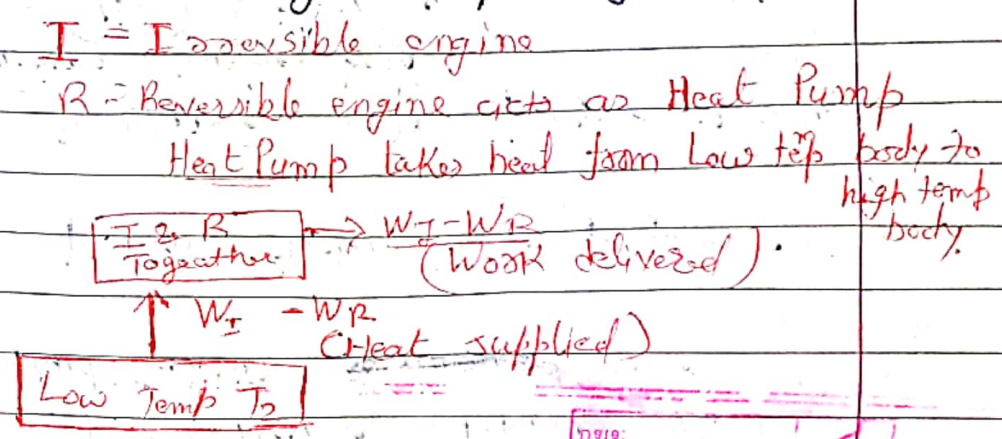 I = Irreversible engine
R = Reversible engine acts as Heat Pump
Heat Pump takes heat from Low temp body to
high temp
body.
I & R → WI - WR
Togeather (Work delivered).
WI - WR
(Heat supplied)
Low Temp T2